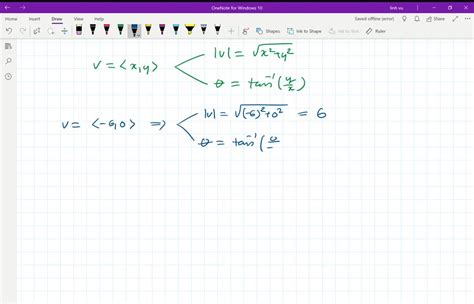 OneNote for Windows 10
linh vu
Home Insert Draw View Help
Saved offline (error) Share
Shapes Ink to Shape Ink to Text Math
v = <x,y> |v| = √x²+y²
θ = tan⁻¹(y/x)
v = <-6,0> ⇒ |v| = √(-6)²+0² = 6
θ = tan⁻¹(0/-